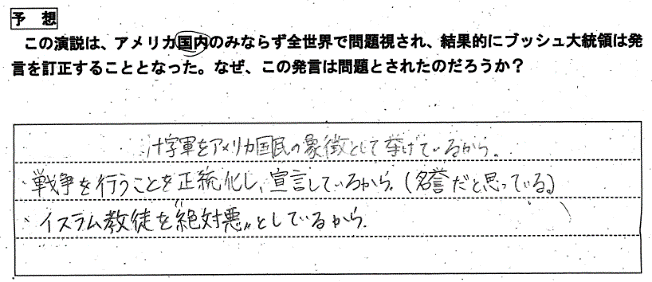 予想
この演説は、アメリカ国内のみならず全世界で問題視され、結果的にブッシュ大統領は発
言を訂正することとなった。なぜ、この発言は問題とされたのだろうか？
十字軍をアメリカ国民の象徴として挙げているから。
・戦争を行うことを正統化し、宣言しているから。(名誉だと思っている。)
・イスラム教徒を“絶対悪”としているから。